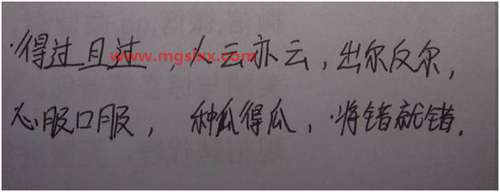 ·得过且过,人云亦云,出尔反尔,
www.mgslxx.com
心服口服,种瓜得瓜,将错就错.